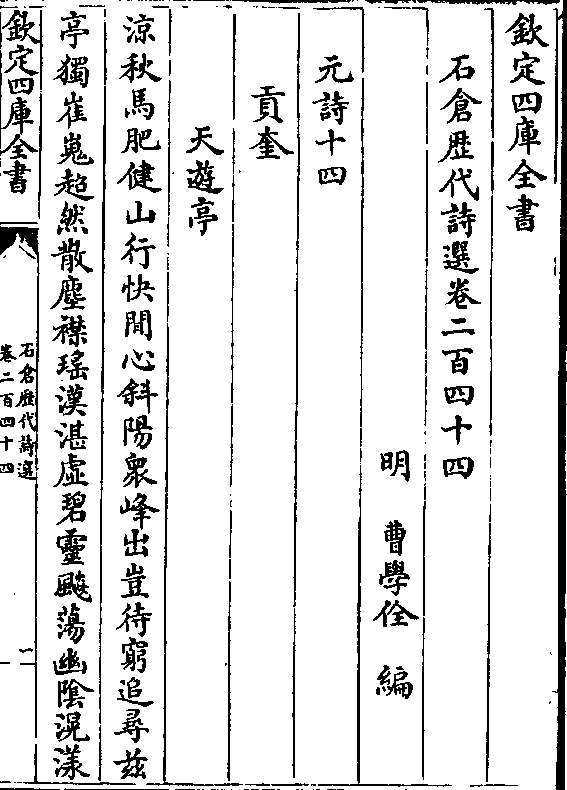 欽定四庫全書
石倉歴代詩選卷二百四十四
明 曹學佺 編
元詩十四
貢奎
天遊亭
凉秋馬肥健山行快閒心斜陽衆峰出豈待窮追尋兹
亭獨崔嵬超然散塵襟瑤漢湛虚碧靈飈蕩幽陰滉漾
欽定四庫全書
石倉歴代詩選
卷二百四十四
一